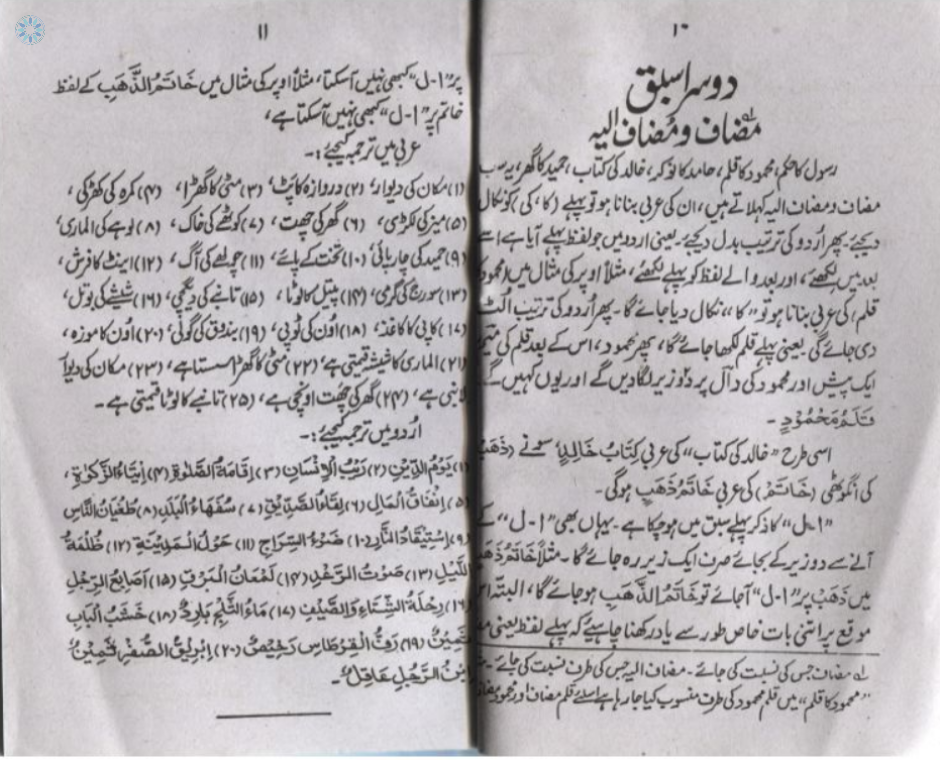 ۱۰
دوسرا سبق
مضاف و مضاف الیہ
رسول کا حکم، محمود کا قلم، حامد کا نوکر، خالد کی کتاب، حمید کا گھر، یہ سب
مضاف و مضاف الیہ کہلاتے ہیں، ان کی عربی بنانا ہو تو پہلے (کا، کی) کو نکال
دیجئے۔ پھر اُردو کی ترتیب بدل دیجئے۔ یعنی اردو میں جو لفظ پہلے آیا ہے اسے
بعد میں لکھئے، اور بعد والے لفظ کو پہلے لکھئے، مثلاً اوپر کی مثال میں (محمود کا
قلم) کی عربی بنانا ہو تو "کا" نکال دیا جائے گا۔ پھر اُردو کی ترتیب الٹ
دی جائے گی۔ یعنی پہلے قلم لکھا جائے گا، پھر محمود، اس کے بعد قلم کی میم
ایک پیش اور محمود کی دال پر دو زیر لگا دیں گے اور یوں کہیں گے
قَلَمُ مَحْمُوْدٍ۔
اسی طرح "خالد کی کتاب" کی عربی کِتَابُ خَالِدٍ، سونے (ذَهَبٌ
کی انگوٹھی (خَاتَمٌ) کی عربی خَاتَمُ ذَهَبٍ ہوگی۔
"ا-ل" کا ذکر پہلے سبق میں ہو چکا ہے۔ یہاں بھی "ا-ل" کے
آنے سے دو زیر کے بجائے صرف ایک زیر رہ جائے گا۔ مثلاً خَاتَمُ ذَهَبٍ
میں ذَهَب پر "ا-ل" آجائے تو خَاتَمُ الذَّهَبِ ہو جائے گا، البتہ اس
موقع پر اتنی بات خاص طور سے یاد رکھنا چاہیے کہ پہلے لفظ یعنی
لہ مضاف جس کی نسبت کی جائے۔ مضاف الیہ جس کی طرف نسبت کی جائے۔
"محمود کا قلم" میں قلم محمود کی طرف منسوب کیا جا رہا ہے اسلئے قلم مضاف اور محمود مضاف
۱۱
پر "ا-ل" کبھی نہیں آسکتا، مثلاً اوپر کی مثال میں خَاتَمُ الذَّهَبِ کے لفظ
خاتم پر "ا-ل" کبھی نہیں آسکتا ہے،
عربی میں ترجمہ کیجئے:۔
(۱) مکان کی دیوار، (۲) دروازہ کا پٹ، (۳) مٹی کا گھڑا، (۴) کمرہ کی کھڑکی،
(۵) میز کی لکڑی، (۶) گھر کی چھت، (۷) کوٹھے کی خاک، (۸) لوہے کی الماری،
(۹) حمید کی چارپائی، (۱۰) تخت کے پائے، (۱۱) چولھے کی آگ، (۱۲) اینٹ کا فرش،
(۱۳) سورج کی گرمی، (۱۴) پیتل کا لوٹا، (۱۵) تانبے کی دیگچی، (۱۶) شیشے کی بوتل،
(۱۷) کاپی کا کاغذ، (۱۸) اُون کی ٹوپی، (۱۹) بندوق کی گولی، (۲۰) اُون کا موزہ،
(۲۱) الماری کا شیشہ قیمتی ہے، (۲۲) مٹی کا گھڑا سستا ہے، (۲۳) مکان کی دیوار
لانبی ہے، (۲۴) گھر کی چھت اونچی ہے، (۲۵) تانبے کا لوٹا قیمتی ہے۔
اُردو میں ترجمہ کیجئے:۔
(۱) يَوْمُ الدِّيْنِ (۲) رَيْبُ الْاِنْسَانِ (۳) اِقَامَةُ الصَّلٰوةِ (۴) اِيْتَاءُ الزَّكٰوةِ،
(۵) اِنْفَاقُ الْمَالِ (۶) لِقَاءُ الصَّدِيْقِ (۷) سُفَهَاءُ الْبَلَدِ (۸) طُغْيَانُ النَّاسِ
(۹) اِسْتِيْقَادُ النَّارِ (۱۰) ضَوْءُ السِّرَاجِ (۱۱) حَوْلُ الْمَدِيْنَةِ (۱۲) ظُلْمَةُ
اللَّيْلِ (۱۳) صَوْتُ الرَّعْدِ (۱۴) لَمْعَانُ الْبَرْقِ (۱۵) اَصَابِعُ الرِّجْلِ
(۱۶) رِحْلَةُ الشِّتَاءِ وَالصَّيْفِ (۱۷) مَاءُ الثَّلْجِ بَارِدٌ (۱۸) خَشَبُ الْبَابِ
ثَمِيْنٌ (۱۹) رَقُّ الْقِرْطَاسِ رَخِيْصٌ (۲۰) اِبْرِيْقُ الصُّفْرِ ثَمِيْنٌ
اِبْنُ الرَّجُلِ عَاقِلٌ۔